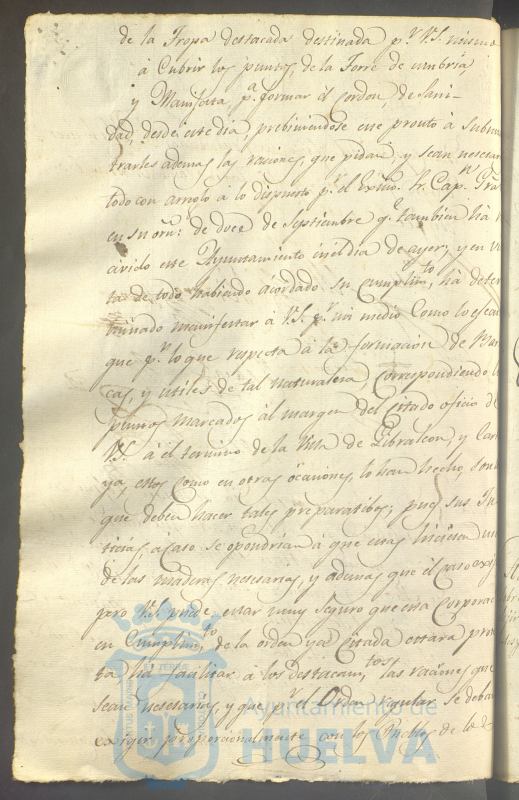 de la Tropa destacada destinada p.r V.S. mismo
à Cubrir los puntos, de la Torre de umbria
y Manifiesta, p.a formar el Cordon, de Sani-
dad, desde este dia, prebiniendose este pronto à Submi
trarles ademas, las raciones, que pidan, y sean nesesar
todo con arreglo à lo dispuesto p.r el Exmo. Sr. Cap.n Gral
en su orn: de doce de Septiembre q.e tambien ha
civido este Ayuntamiento en el dia de ayer; y en vi
ta de todo, habiendo acordado su cumplim.to, hà deter
minado manifestar à V.S. p.r mi medio Como lo ejecu
que p.r lo que respecta à la formacion de Bar
cas, y utiles de tal naturalesa, Correspondiendo lo
puntos marcados àl margen del citado oficio de
V.S. à el termino de la Villa de Gibraleon, y Car
ya, estos como en otras ocaciones, lo han hecho, son
que deben hacer tales preparatibos; pues sus Ju
ticias, acaso se opondrian à que estas hiciesen uso
de las maderas nesesarias, y ademas que el caso exij
pero V.S. puede estar muy seguro que esta Corporac
en Cumplim.to de la orden ya citada estara pron
ta hà facilitar à los destacam.tos las raciones que
sean nesesarias, y que p.r el Orden regular se deban
exigir proporcionalmente con los Pueblos de
Ayuntamiento de
HUELVA